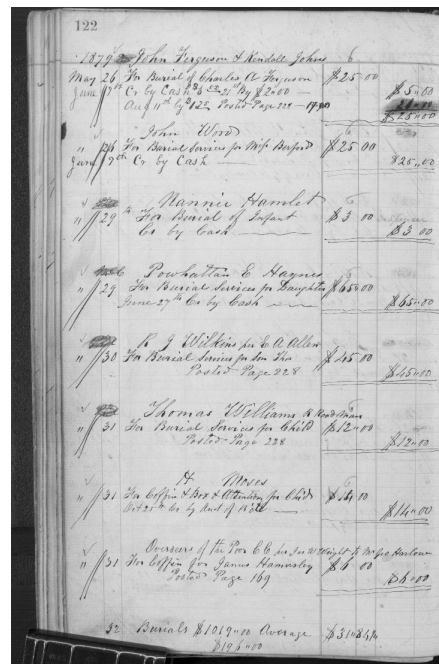 122
1879 John Ferguson & Kendall Johns
May 26 For Burial of Charles A Ferguson $25 00
June 7th Cr by Cash $5 00 27th By $2 00 — $5 00
Aug 11th by $1 00 Posted Page 228 — 17.00
$25 00
John Word
" 26 For Burial Services for Miss $25 00
June 7th Cr by Cash — $25,00
Nannie Hamlet
" 29th For Burial of Infant $3 00
Cr by Cash — $3 00
Powhattan E Haynes
" 29 For Burial Services for Daughter $65 00
June 27th Cr by Cash — $65 00
R J Wilkins per E A Allen
" 30 For Burial Services for $45 00
Posted Page 228
$45 00
Thomas Williams R Road Man
" 31 For Burial Services for Child $12 00
Posted Page 228
$12 00
H Moses
" 31 For Coffin & Box & Attention for Child $14 00
Oct 25th Cr by Rent of — $14 00
Overseers of the Poor C C per Jas W Wright to
" 31 For Coffin for James Hamersley $6 00
Posted Page 169
$6 00
32 Burials $1019 00 Average $31 84